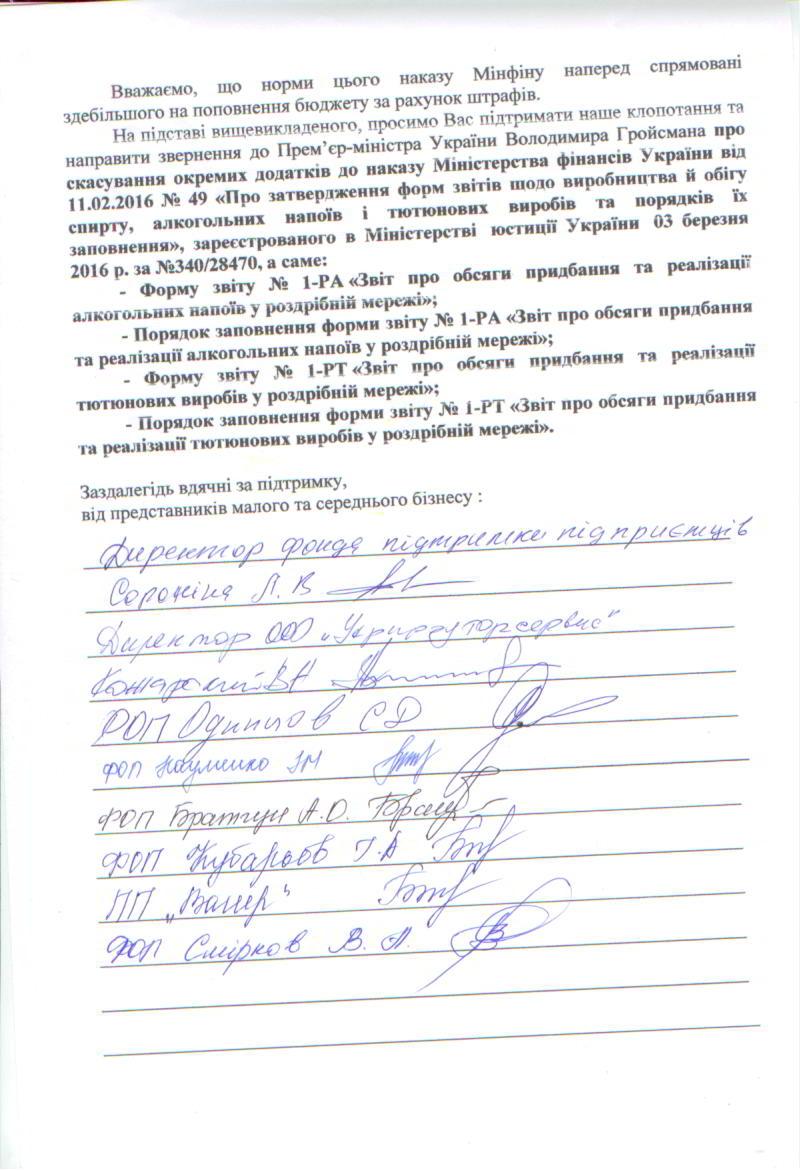 Вважаємо, що норми цього наказу Мінфіну наперед спрямовані
здебільшого на поповнення бюджету за рахунок штрафів.
На підставі вищевикладеного, просимо Вас підтримати наше клопотання та
направити звернення до Прем’єр-міністра України Володимира Гройсмана про
скасування окремих додатків до наказу Міністерства фінансів України від
11.02.2016 № 49 «Про затвердження форм звітів щодо виробництва й обігу
спирту, алкогольних напоїв і тютюнових виробів та порядків їх
заповнення», зареєстрованого в Міністерстві юстиції України 03 березня
2016 р. за №340/28470, а саме:
- Форму звіту № 1-РА «Звіт про обсяги придбання та реалізації
алкогольних напоїв у роздрібній мережі»;
- Порядок заповнення форми звіту № 1-РА «Звіт про обсяги придбання
та реалізації алкогольних напоїв у роздрібній мережі»;
- Форму звіту № 1-РТ «Звіт про обсяги придбання та реалізації
тютюнових виробів у роздрібній мережі»;
- Порядок заповнення форми звіту № 1-РТ «Звіт про обсяги придбання
та реалізації тютюнових виробів у роздрібній мережі».
Заздалегідь вдячні за підтримку,
від представників малого та середнього бізнесу :
Директор фонда підтримки підприємців
Сорокіна Л.В
Директор ООО
ФОП СД
ФОП Науменко
ФОП Братчун А.О.
ФОП
ПП
ФОП Смірнов В.